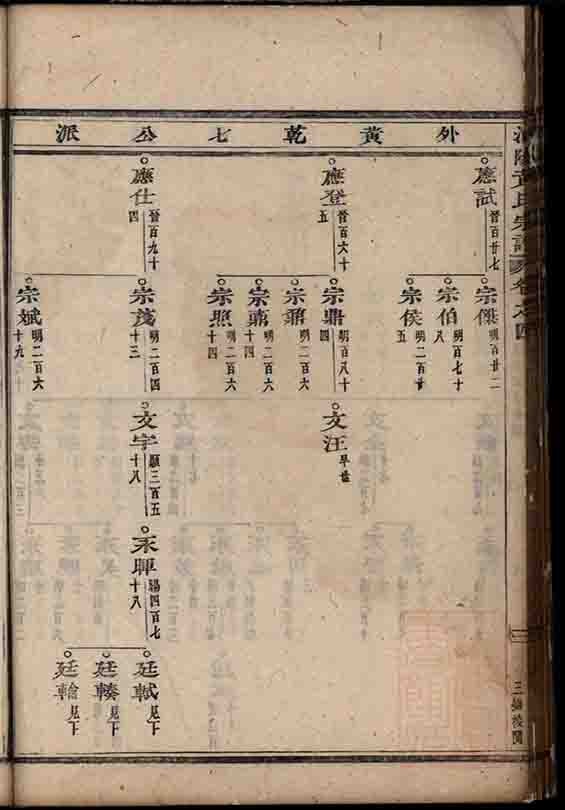 外黃乾七公派
應試 晉百廿七
應登 晉百六十五
應仕 晉百九十四
宗傑 明百廿二
宗伯 明百七十八
宗侯 明二百廿五
宗鼎 明百八十四
宗鼐 明二百六
宗鼒 明二百六十四
宗照 明二百六十四
宗茂 明二百四十三
宗斌 明二百六十九
文汪 早世
文字 顯三百五十八
永暉 揚四百七十八
廷軾 見下
廷輳 見下
廷輪 見下
黃氏宗譜 卷之四